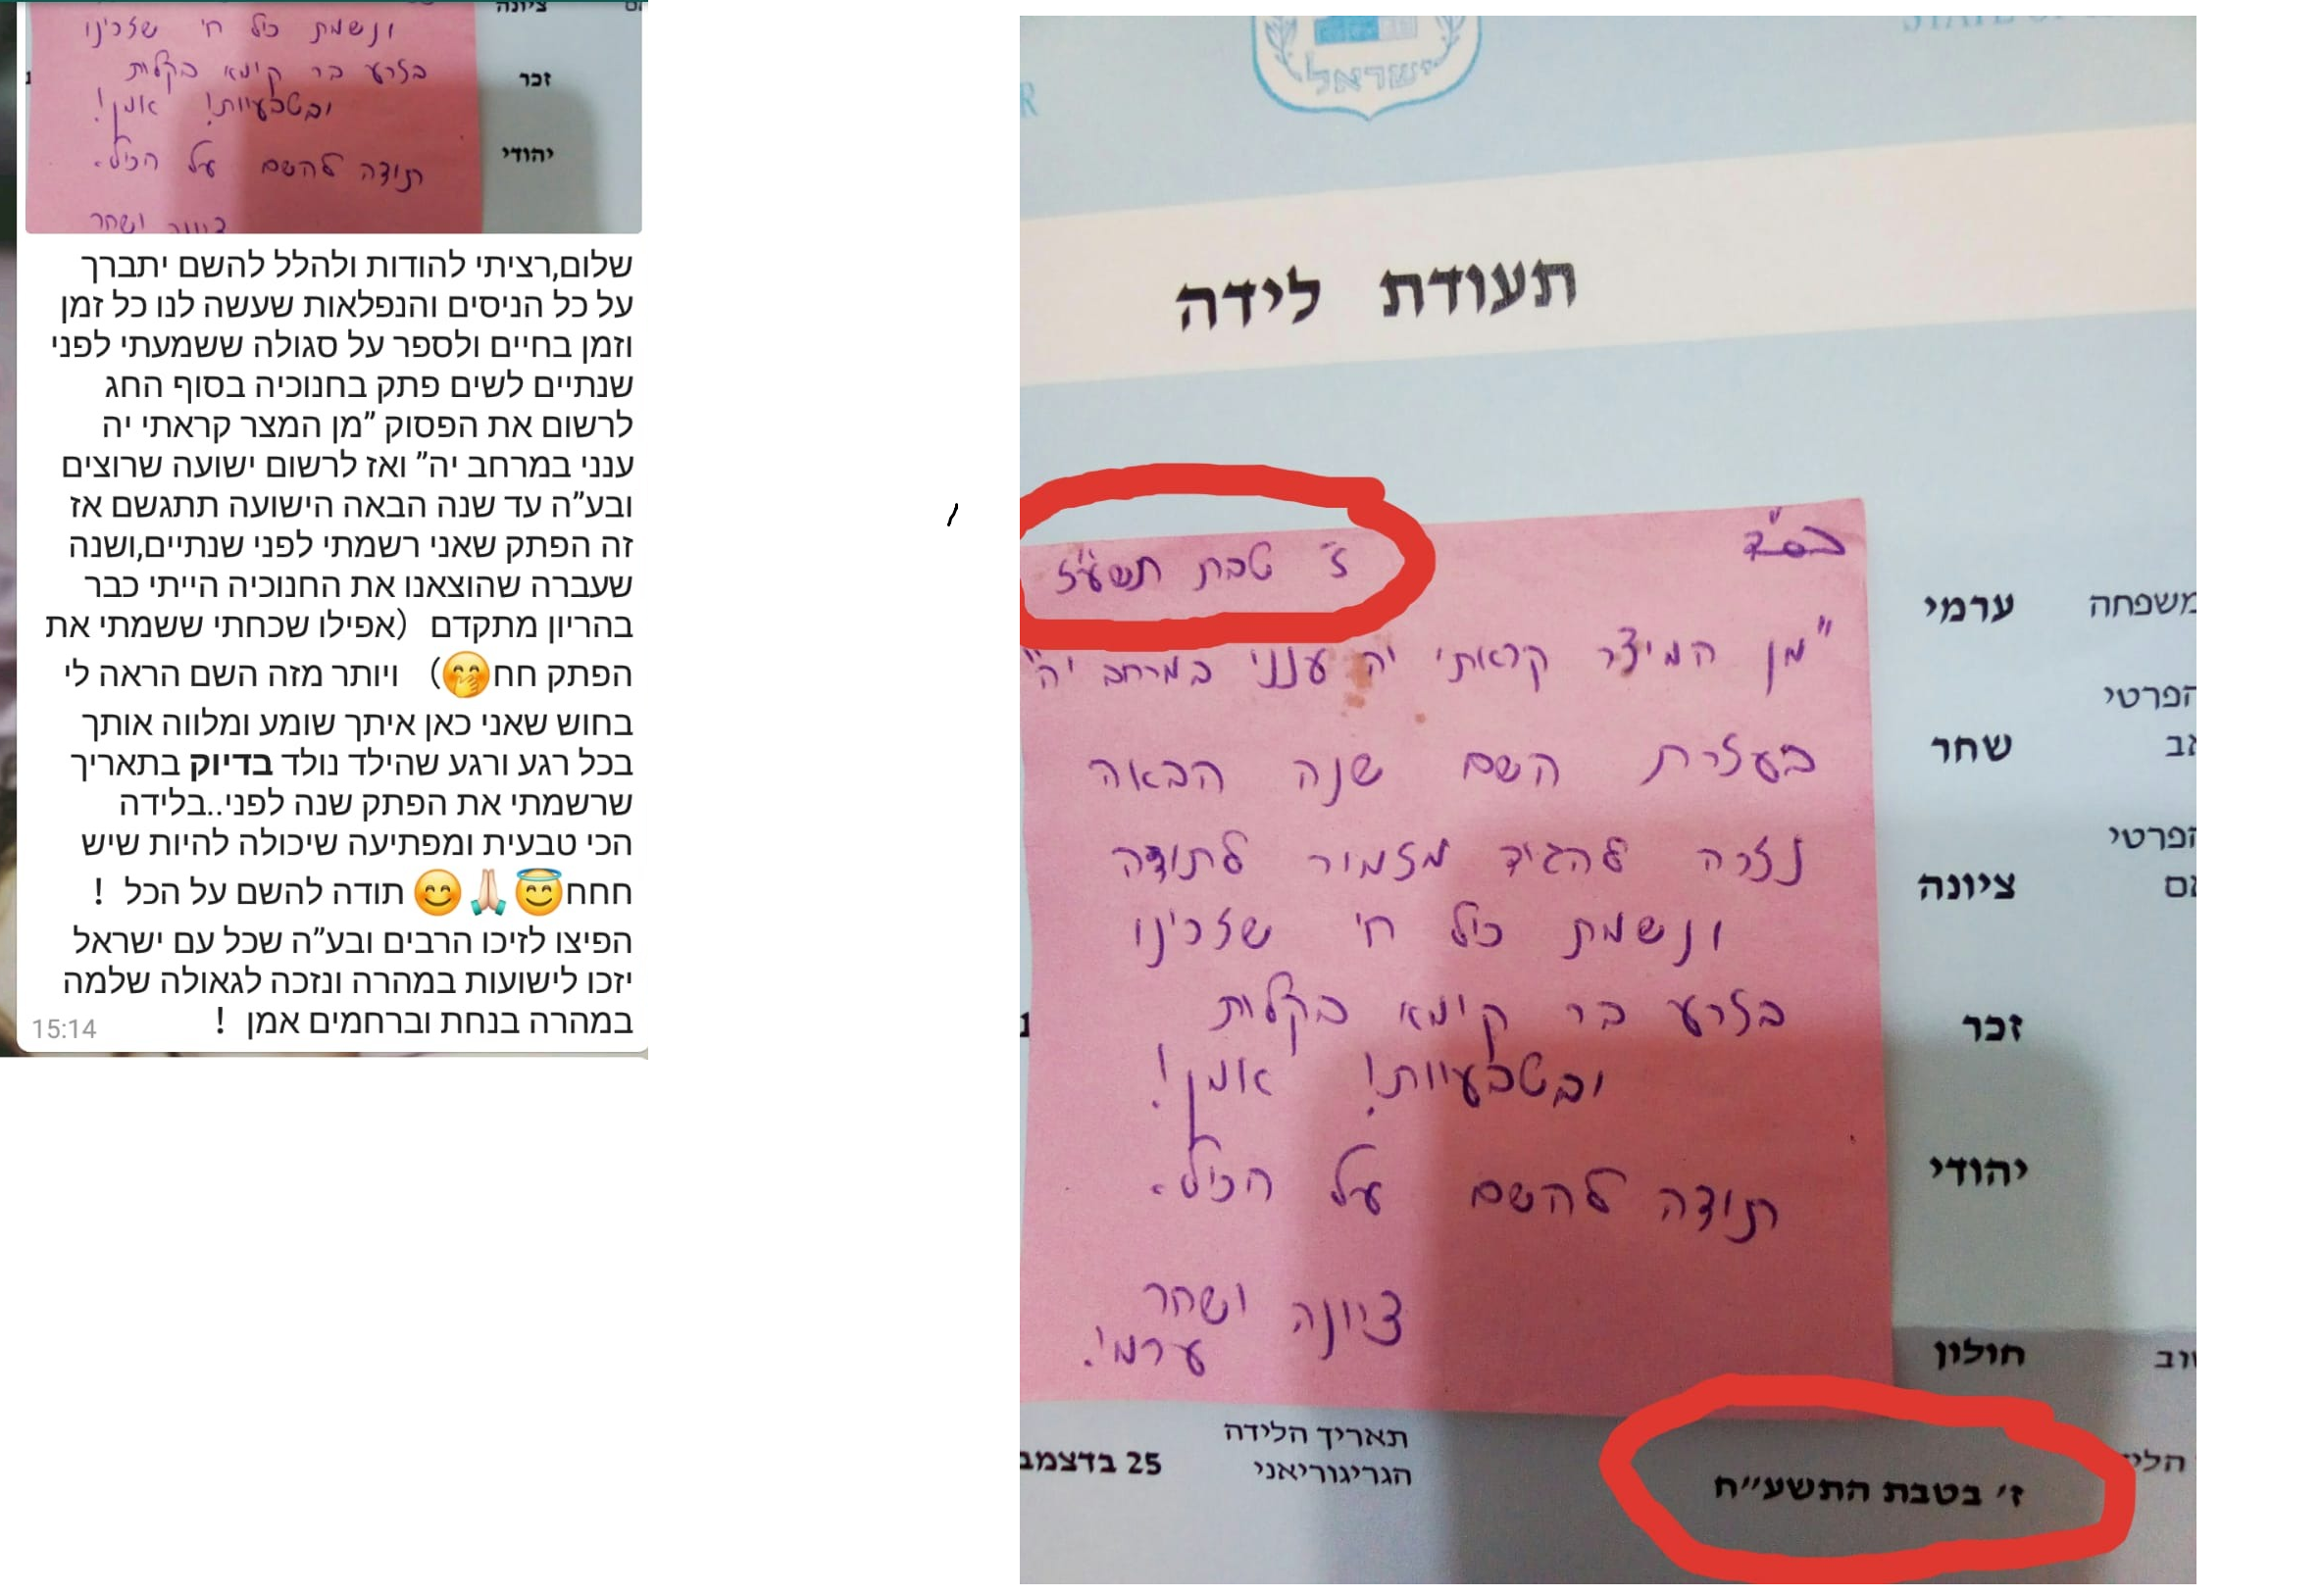 ציונה
ונשמת כול חי שזכינו
בזרע בר קימא בקלות
זכר
ובטבעיות! אמן!
יהודי
תודה להשם על הכול.
ציונה ושחר
שלום,רציתי להודות ולהלל להשם יתברך
על כל הניסים והנפלאות שעשה לנו כל זמן
וזמן בחיים ולספר על סגולה ששמעתי לפני
שנתיים לשים פתק בחנוכיה בסוף החג
לרשום את הפסוק ״מן המצר קראתי יה
ענני במרחב יה״ ואז לרשום ישועה שרוצים
ובע״ה עד שנה הבאה הישועה תתגשם אז
זה הפתק שאני רשמתי לפני שנתיים,ושנה
שעברה שהוצאנו את החנוכיה הייתי כבר
בהריון מתקדם (אפילו שכחתי ששמתי את
הפתק חח🤭) ויותר מזה השם הראה לי
בחוש שאני כאן איתך שומע ומלווה אותך
בכל רגע ורגע שהילד נולד בדיוק בתאריך
שרשמתי את הפתק שנה לפני..בלידה
הכי טבעית ומפתיעה שיכולה להיות שיש
חחח😇🙏🏻😊 תודה להשם על הכל !
הפיצו לזיכו הרבים ובע״ה שכל עם ישראל
יזכו לישועות במהרה ונזכה לגאולה שלמה
במהרה בנחת וברחמים אמן !
15:14
ישראל
תעודת לידה
בס"ד
ז' טבת תשע"ז
"מן המיצר קראתי יה ענני במרחב יה"
בעזרת השם שנה הבאה
נזכה להגיד מזמור לתודה
ונשמת כול חי שזכינו
בזרע בר קימא בקלות
ובטבעיות! אמן!
תודה להשם על הכול.
ציונה ושחר
ערמי.
משפחה ערמי
הפרטי
שחר
הפרטי
ציונה
זכר
יהודי
חולון
תאריך הלידה
הגריגוריאני
25 בדצמב
ז׳ בטבת התשע״ח